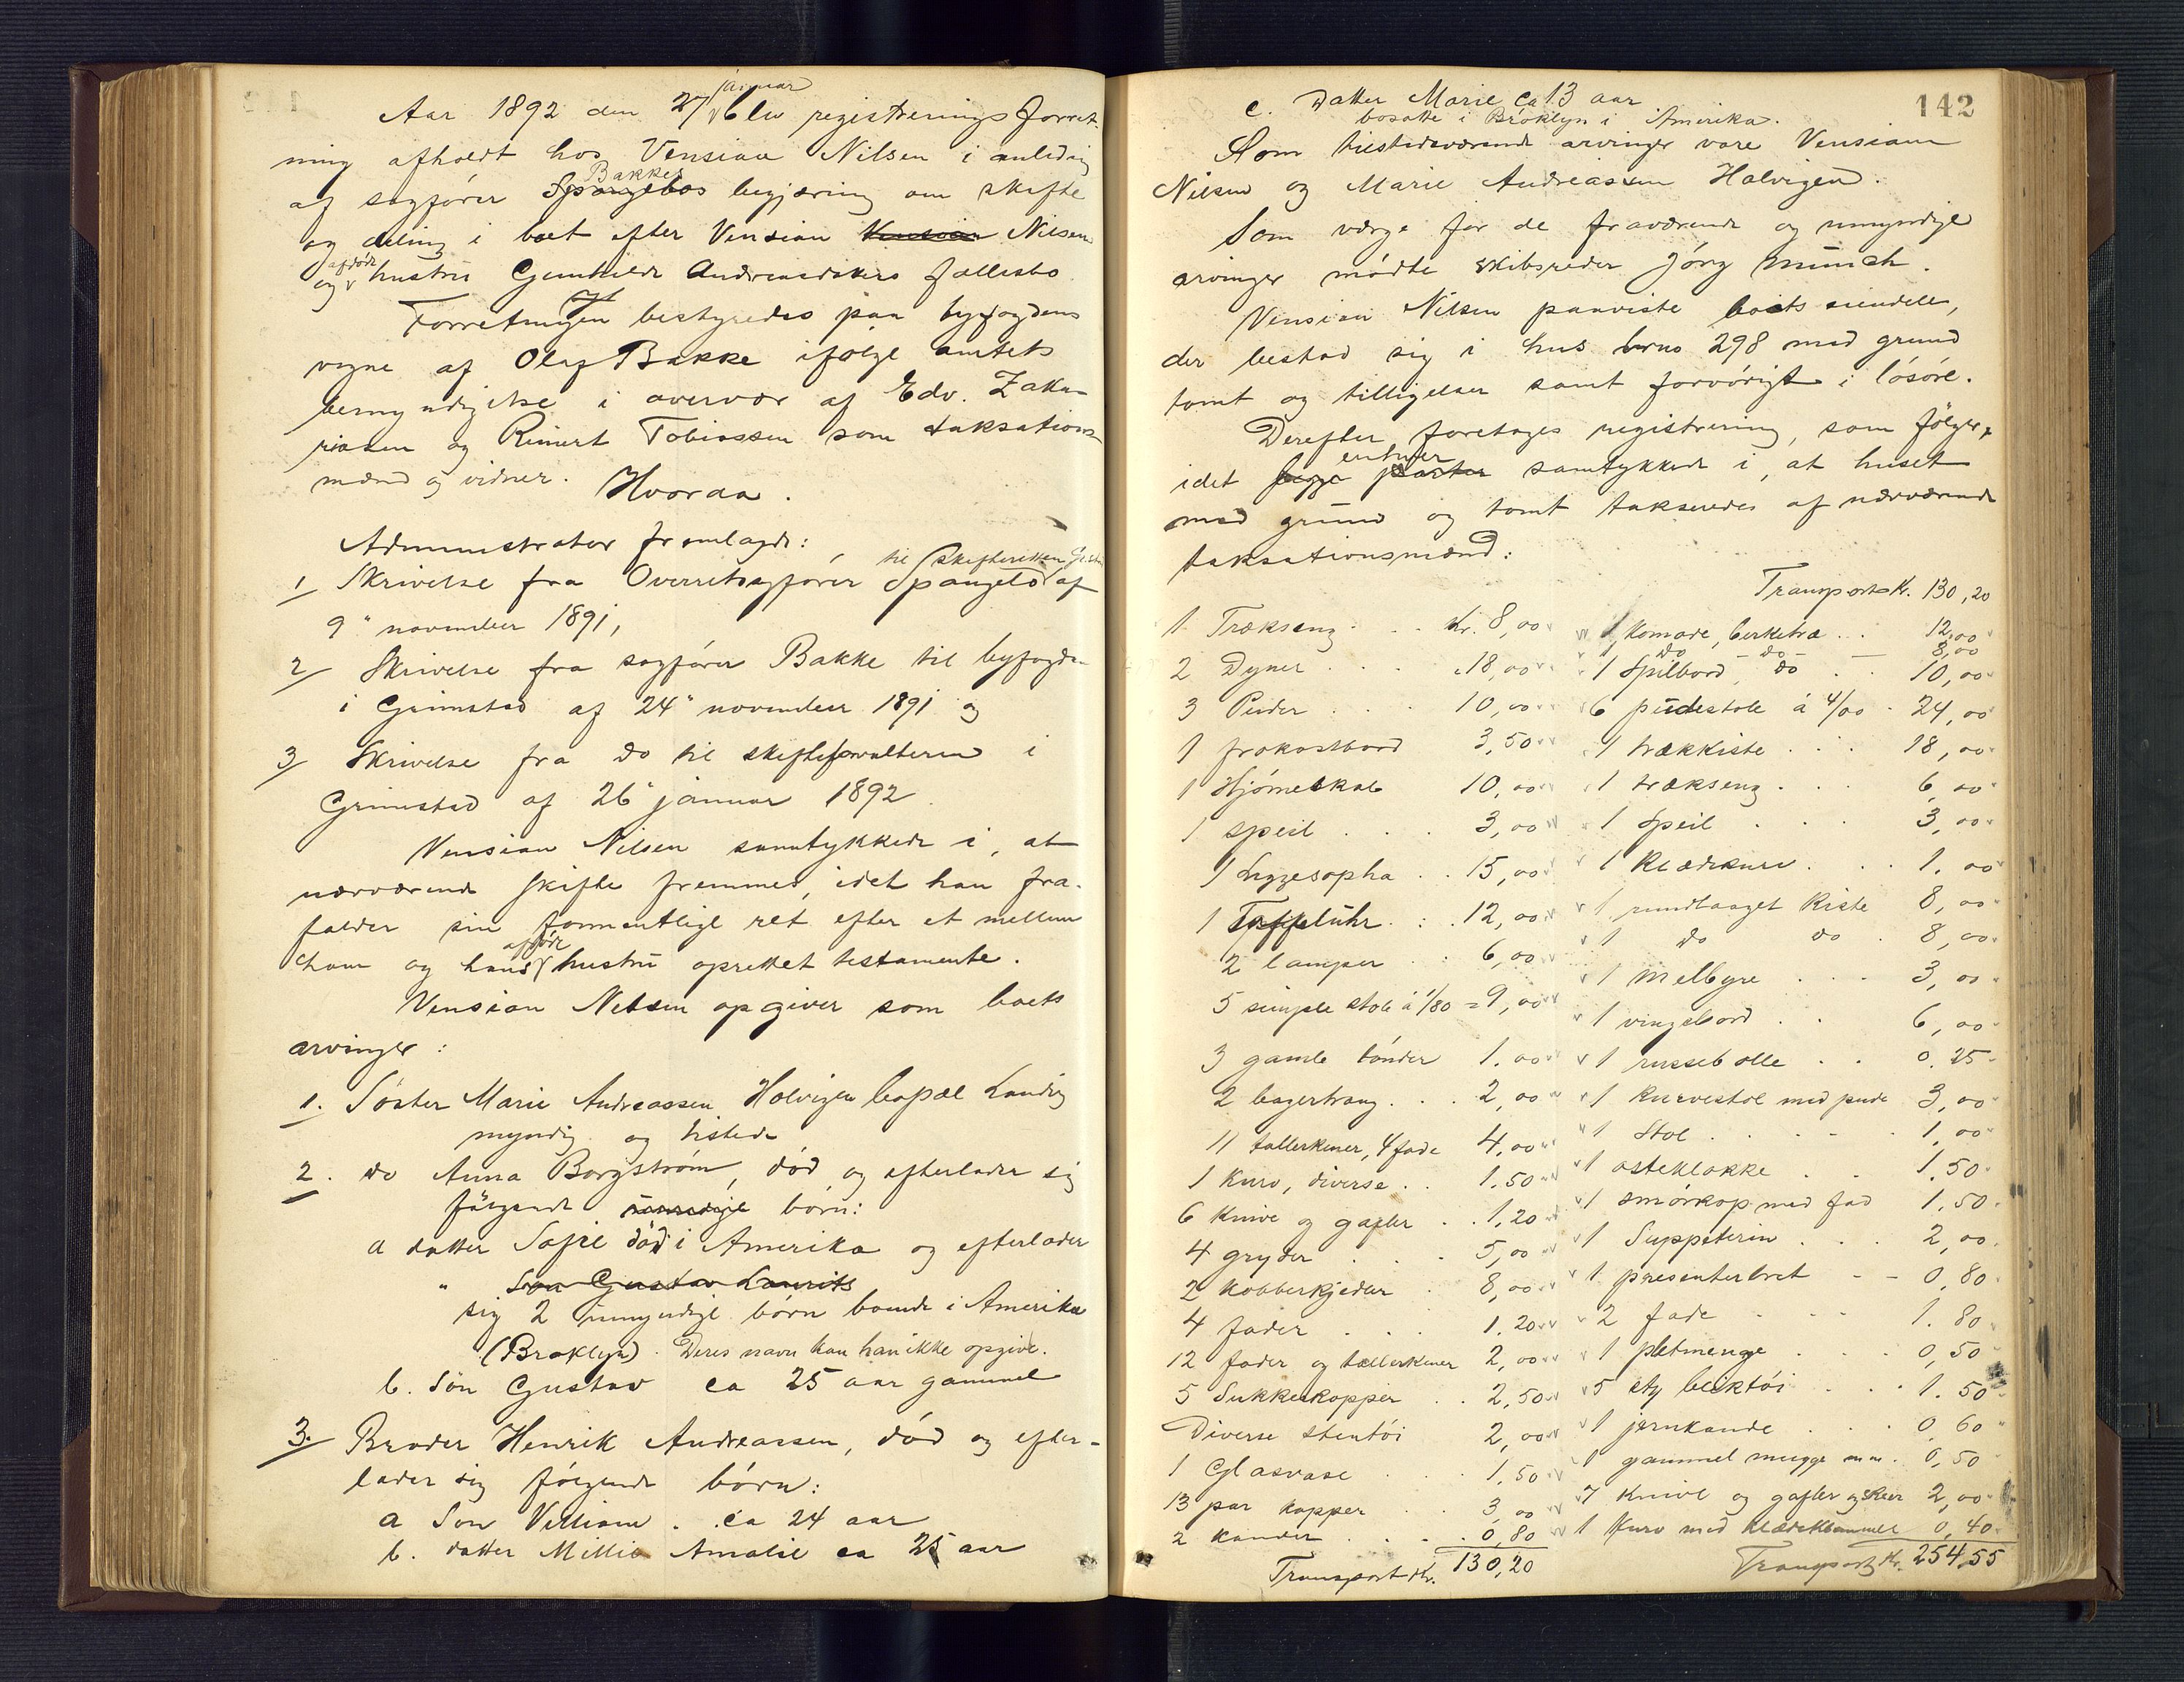 Aar 1892 den 27 januar blev registrerings forret-
ning afholdt hos Vensian Nilsen i anledning
af sagfører Spangelos Bakkes begjæring om skifte
og deling i boet efter Vensian Vensian Nilsen
og afdøde hustru Gunhilde Andreasdatters fællesbo
Forretningen bestyredes paa byfogdens
vegne af Olaf Bakke ifølge amtets
bemyndigelse i overvær af Edv. Zaka-
riasen og Reinert Tobiassen som taksations-
mænd og vidner. Hvorda.
Administrator fremlagde:
1/ Skrivelse fra Overretssagfører Spangelo til skifteretten af
9" november 1891,
2/ Skrivelse fra sagfører Bakke til byfogden
i Grimstad af 24" november 1891 og
3/ Skrivelse fra do til skifteforvalteren i
Grimstad af 26" januar 1892.
Vensian Nilsen samtykkede i, at
nærværende skifte fremmes, idet han fra-
falder sin formentlige ret efter et mellem
ham og hans afdøde hustru oprettet testamente.
Vensian Nilsen opgiver som boets
arvinger:
1. Søster Marie Andreassen Holvigen bopæl Landvig
myndig og tilstede
2. do Anna Borgstrøm, død og efterlader sig
følgende umyndige børn:
a datter Sofie død i Amerika og efterlader
" Søn Gustav Laurits
sig 2 umyndige børn boende i Amerika
(Broklyn). Deres navn kan han ikke opgive.
b. Søn Gustav ca 25 aar gammel
3/ Broder Henrik Andreassen, død og efter-
lader sig følgende børn:
a Søn Villiam . ca 24 aar
b. datter Millie Amalie ca 25 aar
142
c. Datter Marie ca 13 aar
bosatte i Broklyn i Amerika.
Som tilstedeværende arvinger vare Vensian
Nilsen og Marie Andreassen Holvigen.
Som værge for de fraværende og umyndige
arvinger mødte skibsreder Jørg Münch.
Vensian Nilsen paaviste boets eiendele,
der bestod sig i hus brno 298 med grund
tomt og tilligelser samt forøvrigt i løsøre.
Derefter foretages registrering, som følger,
idet begge parter enhver samtykkede i, at huset
med grund og tomt takseredes af nærværende
taksationsmænd:
Transport Kr. 130,20
1 Træksæng . . Kr. 8,00
2 Dyner . . . 18,00
3 Puder . . . 10,00
1 frokostbord 3,50
1 Hjørneskab 10,00
1 speil . . . 3,00
1 Liggesopha . . 15,00
1 Taffeluhr . . 12,00
2 lamper . . 6,00
5 simple stole á 1/80 = 9,00
3 gamle tønder 1.00
2 bagertraug . . . 2,00
11 tallerkener, 4 fade 4,00
1 Kurv, diverse . . 1.50
6 Knive og gafler . . 1,20
4 gryder . . . 5,00
2 kobberkjedler . 8,00
4 fader . . . 1.20
12 fader og tallerkener 2,00
5 Sukkerkopper . . 2,50
Diverse stentøi 2,00
1 Glasvase . . 1,50
13 par kopper . . 3,00
2 kander . . . 0,80
Transport Kr. 130,20
1 Komode, birketræ . . 12,00
1 do do — 8,00
1 Spilbord do . . 10,00
6 pudestole á 4/00 . 24,00
1 trækkiste . . . 18,00
1 træksæng . . . 6,00
1 Speil . . . 3,00
1 Klædekurv . . . 1.00
1 rundlaaget Kiste 8,00
1 do do . 8,00
1 Melbyre . . . 3,00
1 vingebord . . 6,00
1 russebolle . . 0.25
1 Kurvestol med pude 3,00
1 Stol . . . . 1,00
1 osteklokke . . 1.50
1 smørkop med fad 1,50
1 Suppeterin . . . 2,00
1 presenterbret - - 0,80
2 fade . . . 1.80
1 pletmenage . . . 0,50
5 sty bliktøi . . . 1.50
1 jernkande . . . 0,60
1 gammel mugge m.m. 0,50
7 Knive og gafler og skeer 2,00
1 Kurv med klædeklemmer 0,40
Transport Kr. 254,55